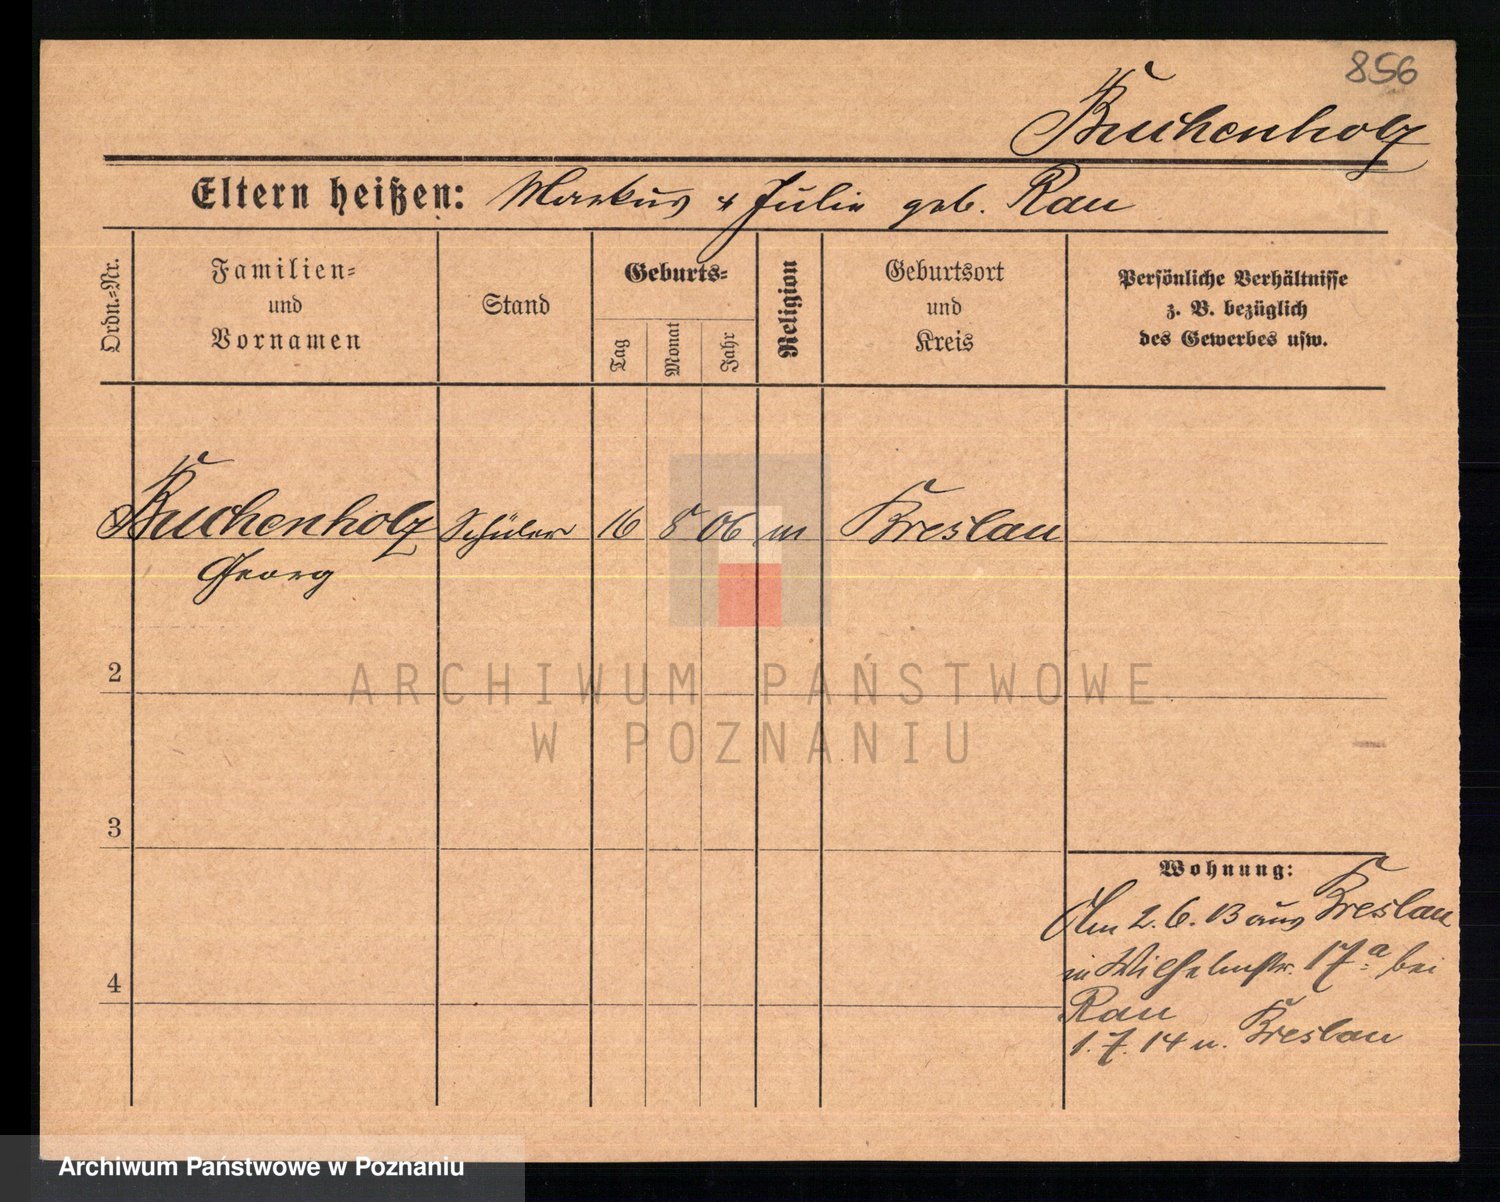 856
Buchenholz
Eltern heißen: Markus & Julie geb. Rau
Ordn.=Nr.
Familien=
und
Vornamen
Stand
Geburts=
Tag
Monat
Jahr
Religion
Geburtsort
und
Kreis
Persönliche Verhältnisse
z. B. bezüglich
des Gewerbes usw.
Buchenholz Schüler 16 8 06 m Breslau
Georg
2
3
4
Wohnung:
Am 2. 6. 13 aus Breslau
in Wilhelmstr. 17a bei
Rau
1. 7. 14 n. Breslau
ARCHIWUM PAŃSTWOWE
W POZNANIU
Archiwum Państwowe w Poznaniu